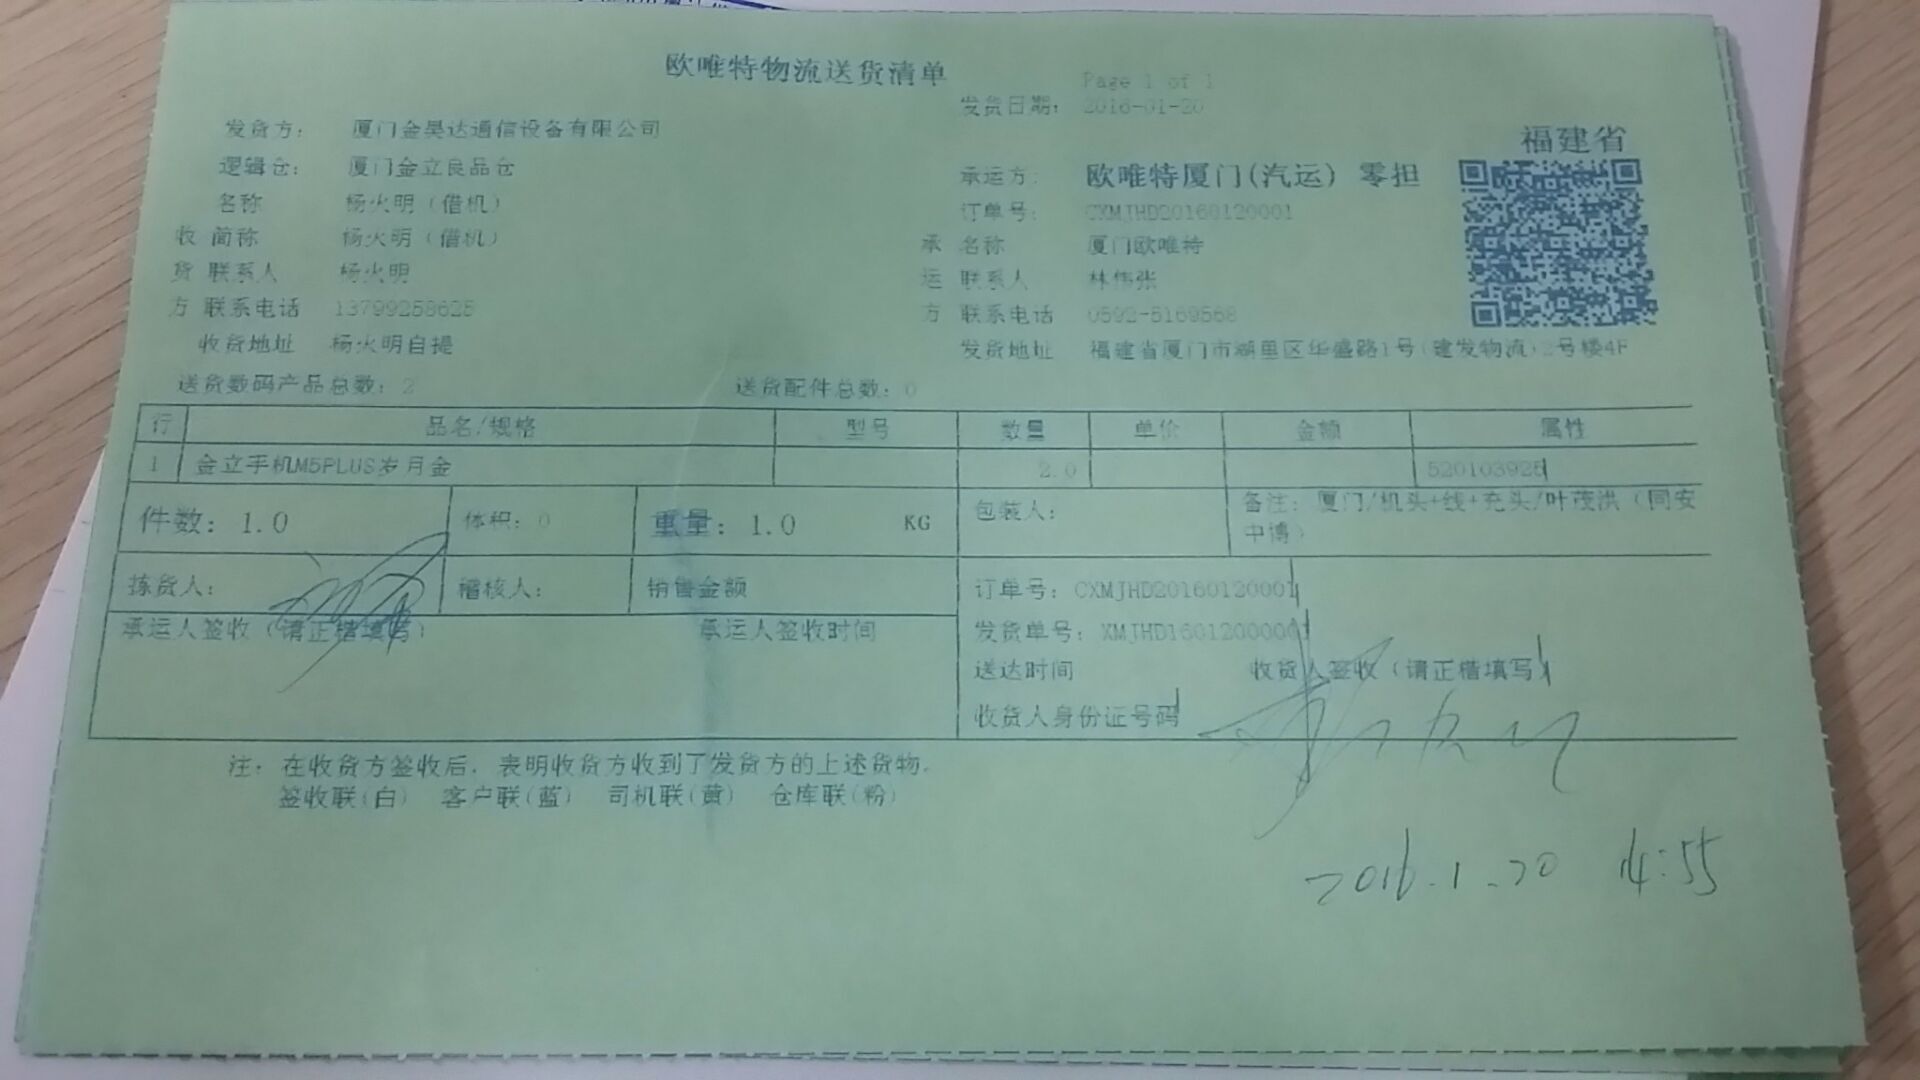 欧唯特物流送货清单
Page 1 of 1
发货日期: 2016-01-20
发货方: 厦门金昊达通信设备有限公司
福建省
逻辑仓: 厦门金立良品仓
承运方: 欧唯特厦门(汽运) 零担
名称 杨火明(借机)
订单号: CXMJHD20160120001
收 简称 杨火明(借机)
承 名称 厦门欧唯特
货 联系人 杨火明
运 联系人 林伟张
方 联系电话 13799258625
方 联系电话 0592-5169568
收货地址 杨火明自提
发货地址 福建省厦门市湖里区华盛路1号(建发物流)2号楼4F
送货数码产品总数: 2 送货配件总数: 0
行 品名/规格 型号 数量 单价 金额 属性
1 金立手机M5PLUS岁月金 2.0 520103925
件数: 1.0 体积: 0 重量: 1.0 KG 包装人: 备注: 厦门/机头+线+充头/叶茂洪(同安
中博)
拣货人: 稽核人: 销售金额 订单号: CXMJHD20160120001
承运人签收(请正楷填写) 承运人签收时间 发货单号: XMJHD16012000001
送达时间 收货人签收(请正楷填写)
收货人身份证号码
注: 在收货方签收后, 表明收货方收到了发货方的上述货物.
签收联(白) 客户联(蓝) 司机联(黄) 仓库联(粉)
2016.1.20 14:55